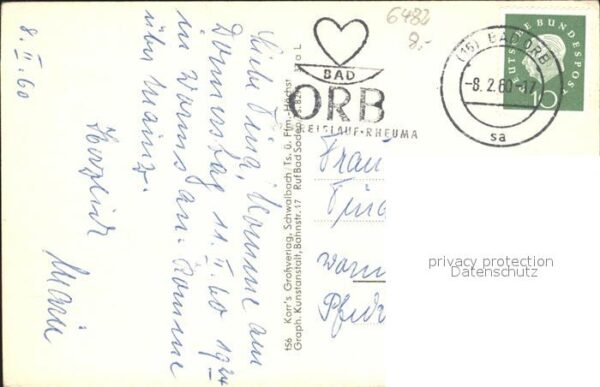 8. II. 60
Liebe Tina, komme am
Donnerstag 11. II. 60 19
in Worms an. Komme
über Mainz.
Herzlich
Marie
156 Korr's Großverlag, Schwalbach Ts. ü. Ffm.-Höchst
Graph. Kunstanstalt, Bahnstr. 17 Ruf Bad Soden
6482
8.-
BAD
ORB
KREISLAUF·RHEUMA
(16) BAD ORB
-8.2.60-17
sa
DEUTSCHE BUNDESPOST
10
Frau
Tina
Worm
privacy protection
Datenschutz